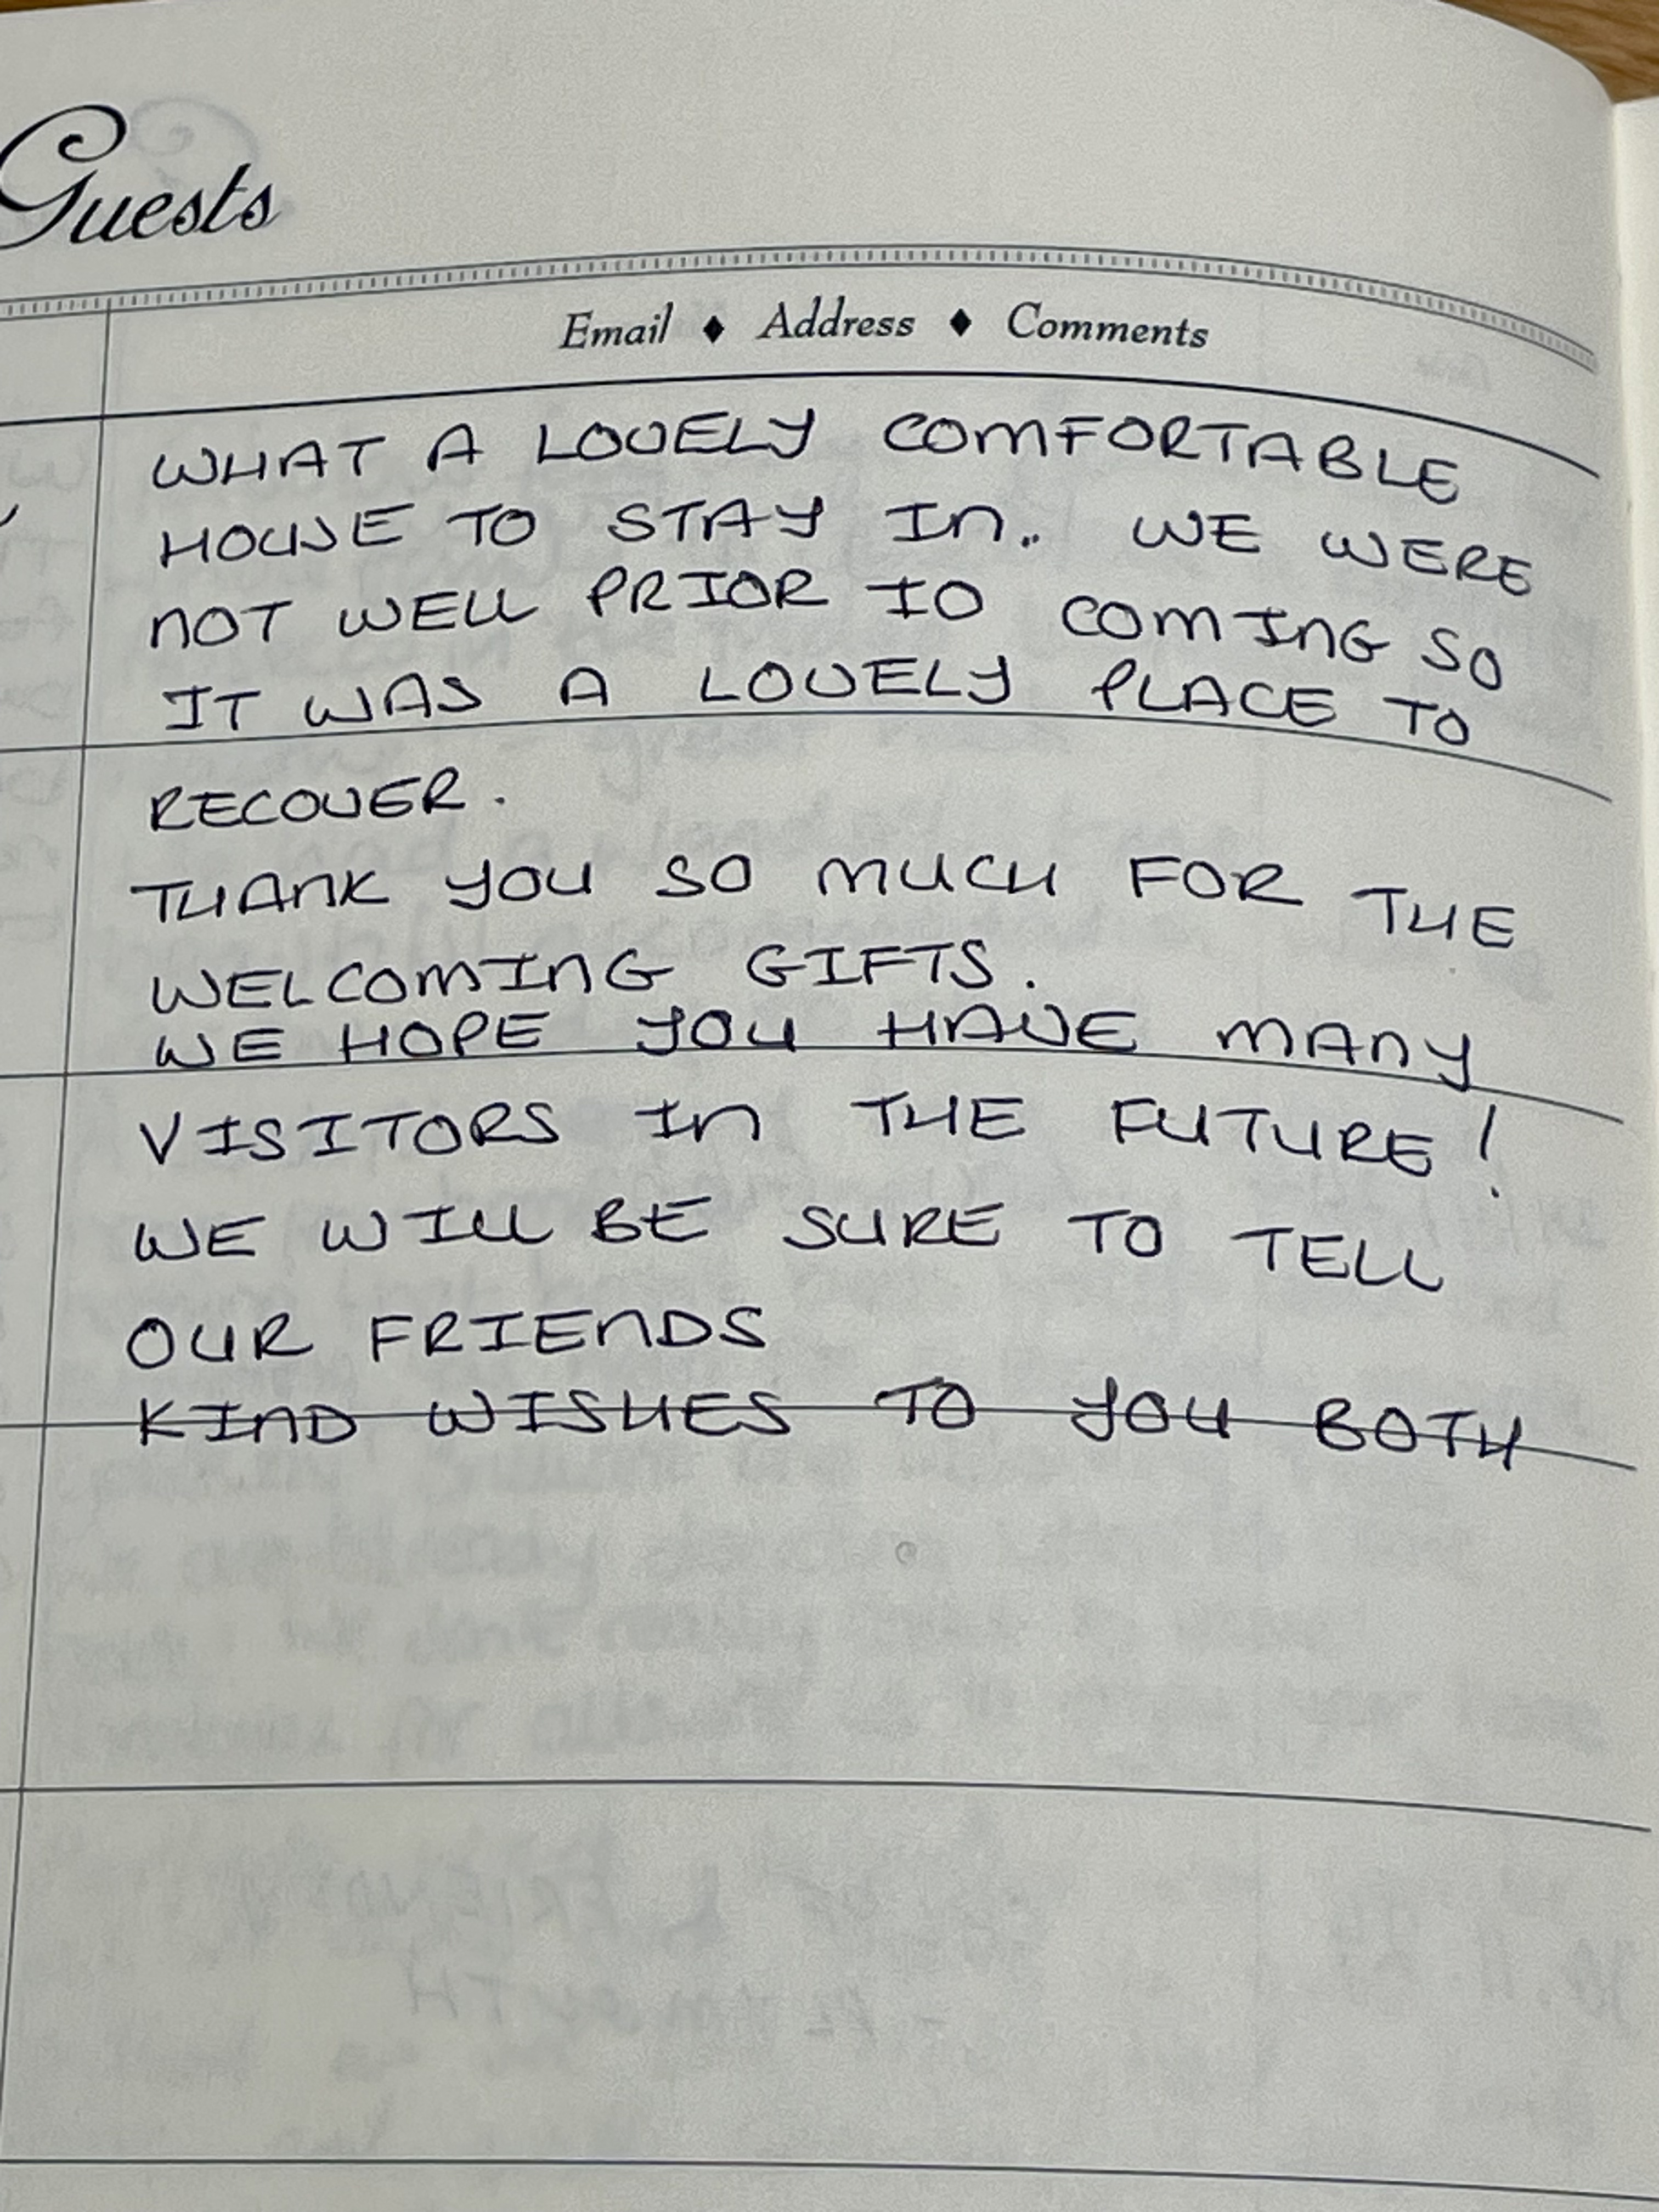 Guests
Email ♦ Address ♦ Comments
WHAT A LOVELY COMFORTABLE
HOUSE TO STAY IN.. WE WERE
NOT WELL PRIOR TO COMING SO
IT WAS A LOVELY PLACE TO
RECOVER.
THANK YOU SO MUCH FOR THE
WELCOMING GIFTS.
WE HOPE YOU HAVE MANY
VISITORS IN THE FUTURE!
WE WILL BE SURE TO TELL
OUR FRIENDS
KIND WISHES TO YOU BOTH